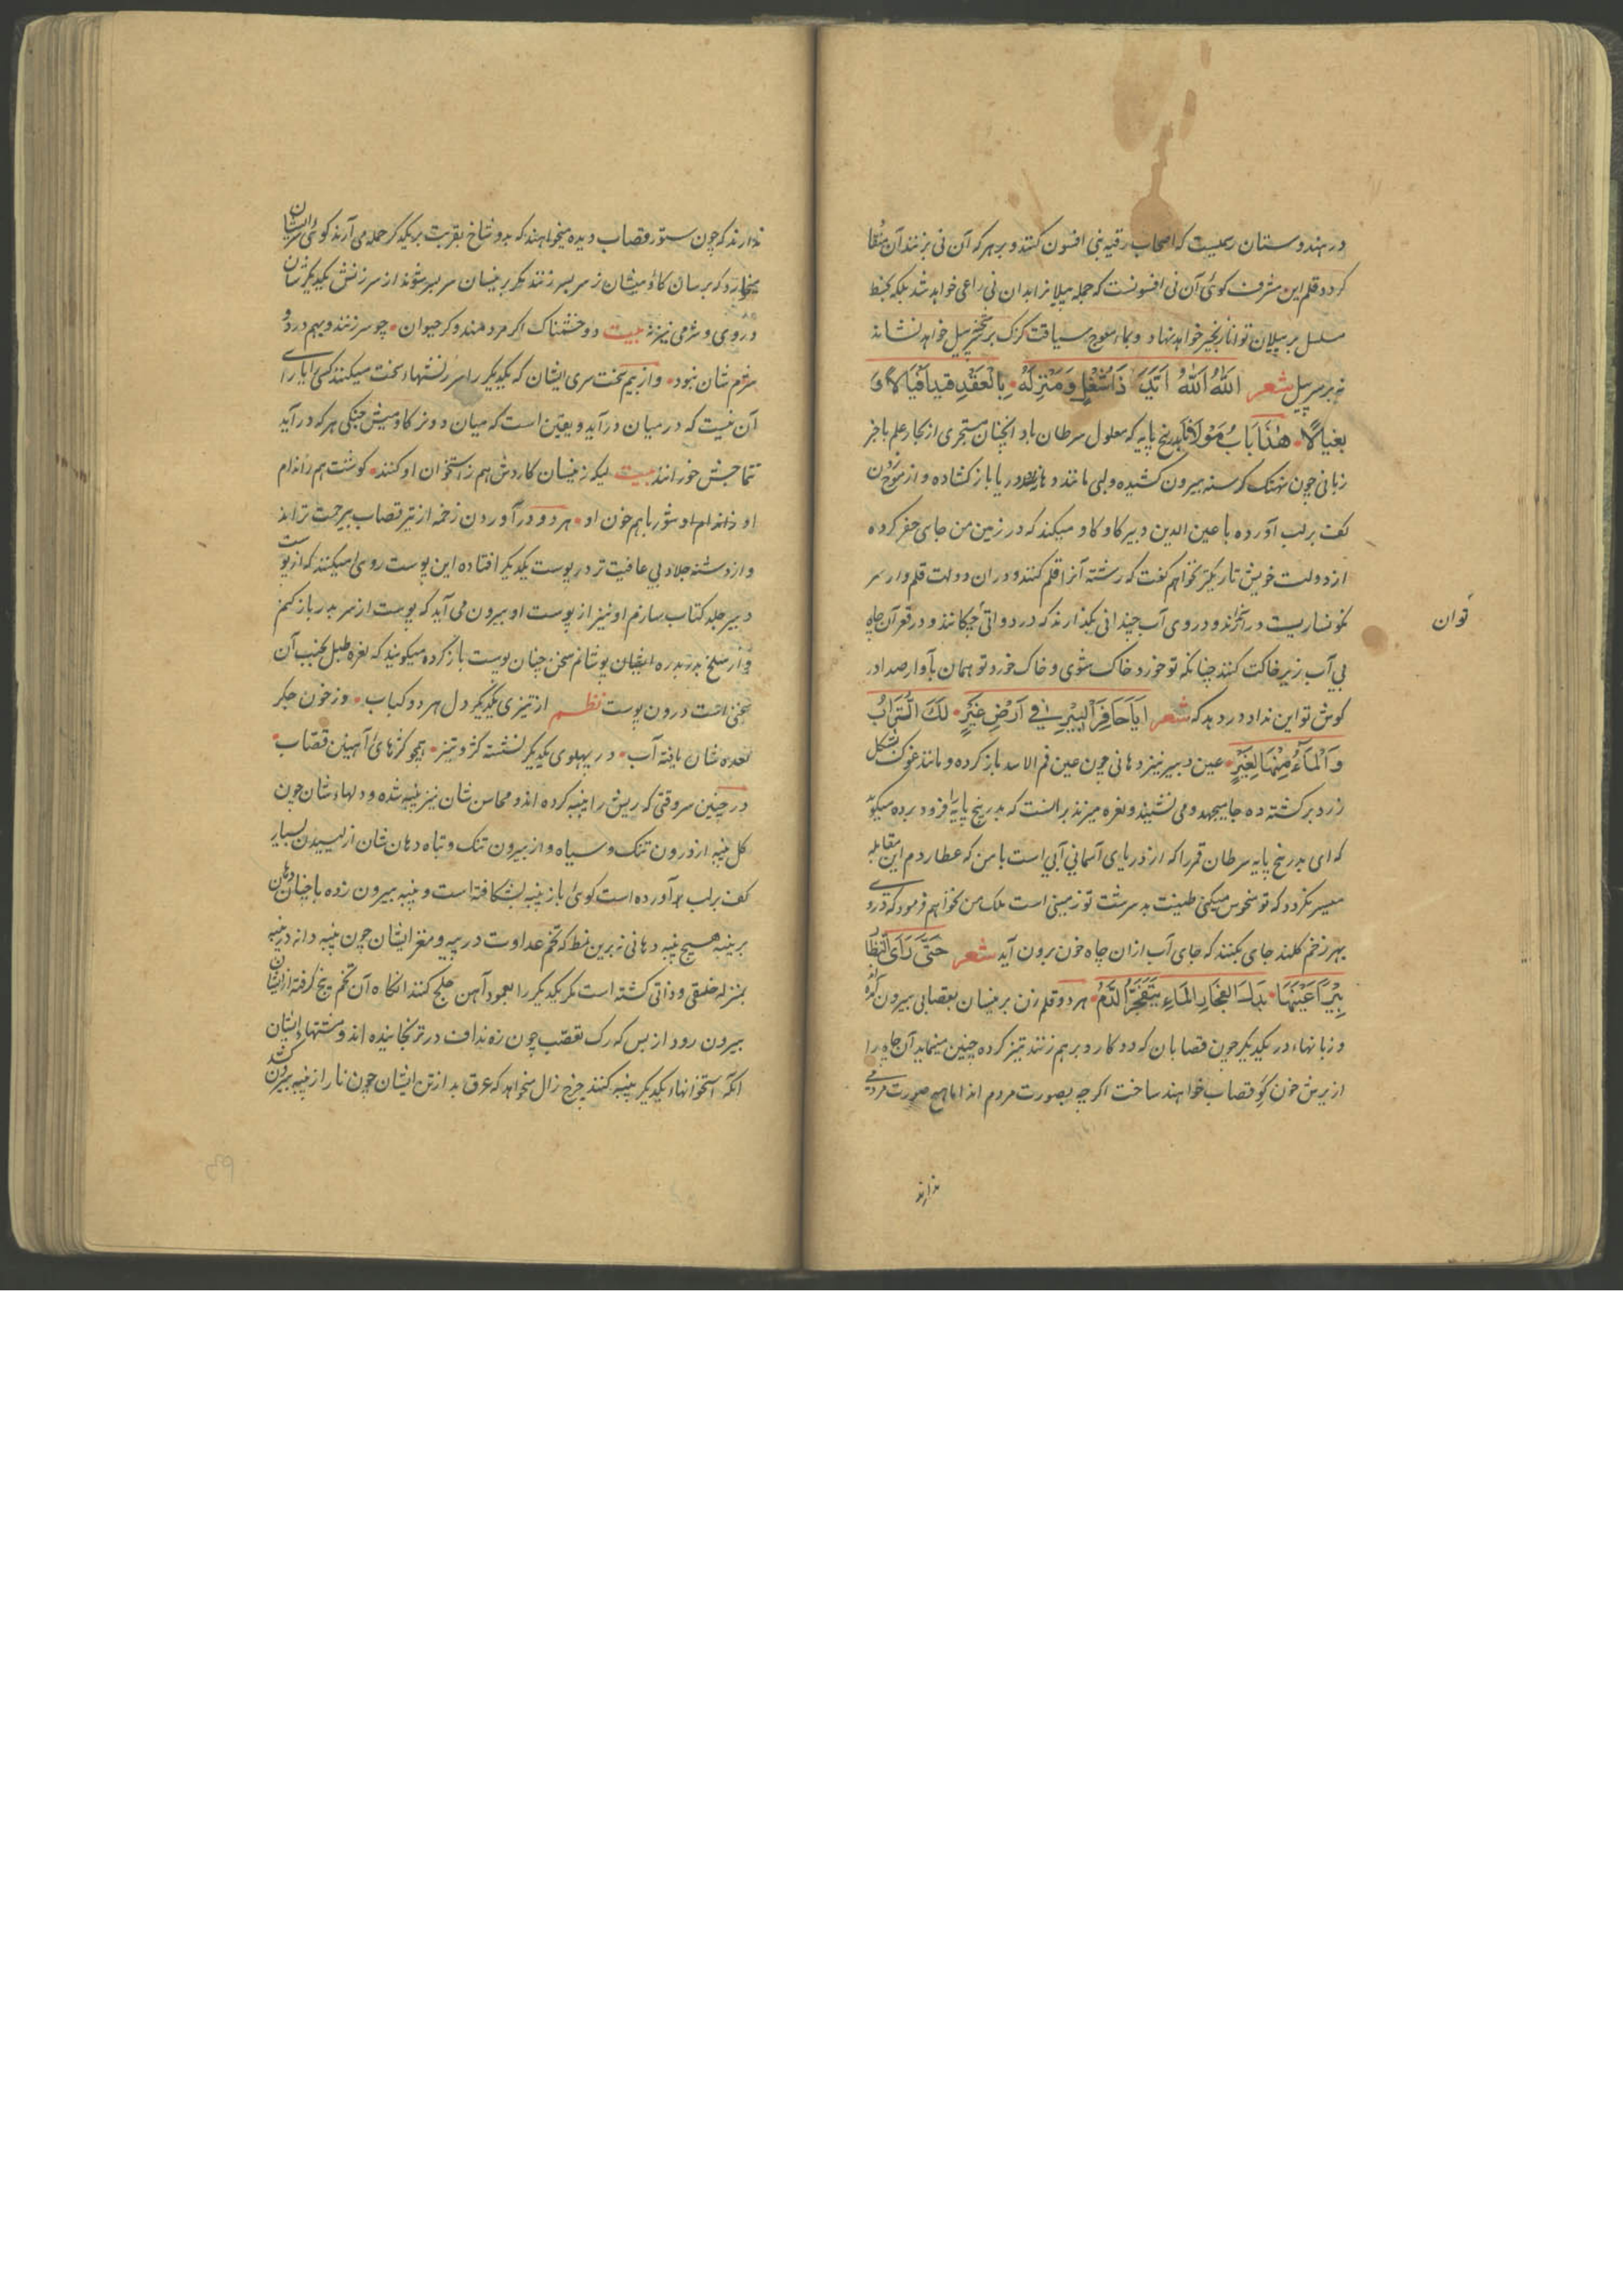 در هندوستان رسمیست که اصحاب رقیه بنی افسون کنند و بر هر که آن نی بزنند آن منقا
کردد قلم این مشرف کوئی آن نی افسونست که جمله پیلا نرا بدان نی راعی خواهد شد بلکه بخط
مسلسل بر پیلان توانا زنجیر خواهد نهاد و سیاقت کرک بر سر پیل خواهد نشاند
نه بر سر پیل شعر الله الله اتیک ذا شغل و منزله بالعقد قیدا فیالا و
بغیالا هذا باب مولانا بدرنج پایه که معلول سرطان باد آنچنان متبحری از بحار علم باخر
زبانی چون نهنک کرسنه بیرون کشیده ولبی مانند دریا باز کشاده و از موج خون
کف بر لب آورده با عین الدین دبیر کاو کاو میکند که در زمین من جاهی حفر کرده
از دولت خویش تاریکتر بخواهم کفت که رشته آنرا قلم کنند و در ان دولت قلم وار سر
نکونساریت در آنجا و در روی آب چندانی نکذارند که در دواتی چکانند و در قعر آن چاه
توان
بی آب زیر خاکت کنند چنانکه تو خورد خاک شوی و خاک خورد تو همان بآواز صدا در
کوش تو این ندا در دهد که شعر ایا حافر البیر فی ارض غیر لک التراب
و الماء منها لغیر عین دبیر نیز دهانی چون عین فم الاسد باز کرده و مانند غوک بشکل
زرد برکشته ده جا میجهد و می نشیند و نعره میزند بر انست که بدرنج پایه را فرود برده میکوید
که ای بدرنج پایه سرطان قمر را که از دریای آسمانی آبی است با من که عطاردم این مقابله
میسر نکردد که تو نحوس میکنی طینت بد سرشت تو زمینی است بلک من بخواهم فرمود که در و
بهر زخم کلند جای بکنند که جای آب از ان چاه خون برون آید شعر حتی رای
بیرا عینها بدل انفجار الماء یتفجر الدم هر دو قلم زن بر مینسان بعصابی بیرون آورده
و زبانهاء در یکدیکر چون قصابان که دو کارد بر هم زنند تیز کرده چنین مینماید آن چاه را
از برش خون قصاب خواهند ساخت اکر چه بصورت مردم اند اما هیچ صورت مردمی
ندارند
ندارند که چون ستور قصاب دیده میخواهند که بدو شاخ بقربت بر یکدیکر حمله می آرند کوئی سر ایشان
میخارد که برسان کاو میشان ز سر بسر زنند مکر بر مینسان سر بسر شوند از سرزنش یکدیکر شان
در روی و شرمی نیز نه بیت دو خشمناک اکر مردمند و کر حیوان چو سر زنند و بهم در دو
شرم شان نبود و از بیم سخت سری ایشان که یکدیکر را سرزنشهاء سخت میکنند کسی را یارای
آن نیست که در میان در آید و یقین است که میان دو نر کاو میش جنکی هر که در آید
تتماجش خورانند بیت لیکن زینسان کاردش هم ز استخوان او کنند کوشت هم ز اندام
او ز اندام او شوربا هم خون او هر دو در آوردن زخمه از تیر قصاب بیرحمت تر اند
و از دشنه جلاد بی عافیت تر در پوست یکدیکر افتاده این پوست روی میکنند که از پوست
دبیر جلد کتاب سازم او نیز از پوست او بیرون می آید که پوست از سر بدر باز کنم
و از سلخ بدر بدره ایشان سخن چنان پوست باز کرده میکویند که نعره طبل بجنب آن
سخنی است درون پوست نظم از تیزی یکدیکر دل هر دو کباب وز خون جکر
معده شان یافته آب در پهلوی یکدیکر نشسته کژ و تیز همچو کژهای آهنین قصاب
در چنین سر وقتی که ریش را پنبه کرده اند و محاسن شان نیز پنبه شده و دلهاء شان چون
کل پنبه از درون تنک و سیاه و از بیرون تنک و تباه دهان شان از لیسیدن بسیار
کف بر لب بر آورده است کوئی باز پنبه بشکافته است و پنبه بیرون زده با چنان دهان
بر پنبه هیچ پنبه دهانی نه برین نمط که تخم عداوت در پیه و مغز ایشان چون پنبه دانه در پنبه
بمنزله خلقی و ذاتی کشته است مکر یکدیکر را بعمود آهن حلج کنند انکاه آن تخم بیخ کرفته از ایشان
بیرون رود از بس که رک تعصب چون زه نداف در ترنکانیده اند و مشتهاء ایشان
انکه استخوانهاء یکدیکر پنبه کنند چرخ زال میخواهد که عرق بد از تن ایشان چون تار از پنبه بیرون کشد